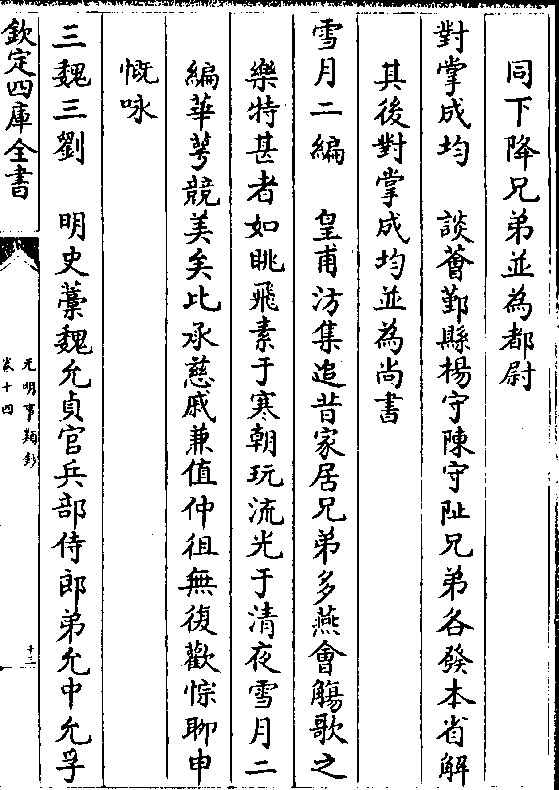 同下降兄弟並為都尉
對掌成均　談薈鄞縣楊守陳守阯兄弟各發本省解
其後對掌成均並為尚書
雪月二編　皇甫汸集追昔家居兄弟多燕會觴歌之
樂特甚者如眺飛素于寒朝玩流光于清夜雪月二
編華萼競美矣比承慈戚兼值仲徂無復歡悰聊申
慨咏
三魏三劉　明史藁魏允貞官兵部侍郎弟允中允孚
欽定四庫全書
元明事類鈔
卷十四
十三